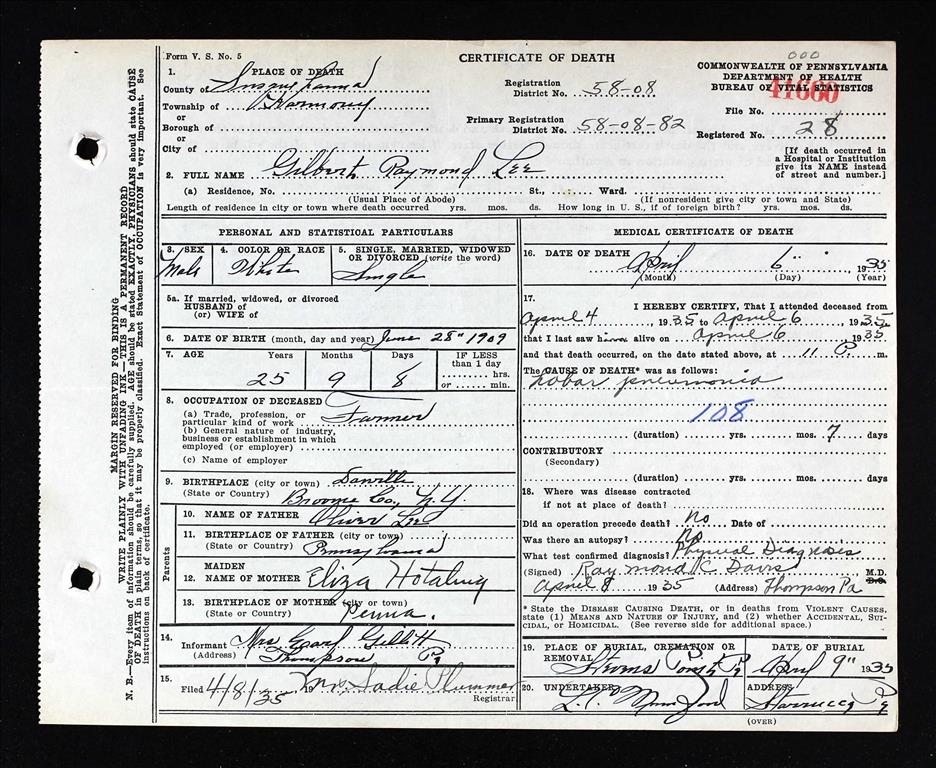 Form V. S. No. 5
CERTIFICATE OF DEATH
000
COMMONWEALTH OF PENNSYLVANIA
DEPARTMENT OF HEALTH
BUREAU OF VITAL STATISTICS
41660
1. PLACE OF DEATH
County of Susquehanna
Township of Harmony
or
Borough of
or
City of
Registration District No. 58-08
Primary Registration District No. 58-08-82
File No.
Registered No. 28
[If death occurred in a Hospital or Institution give its NAME instead of street and number.]
2. FULL NAME Gilbert Raymond Lee
(a) Residence, No. St., Ward.
(Usual Place of Abode) (If nonresident give city or town and State)
Length of residence in city or town where death occurred yrs. mos. ds. How long in U. S., if of foreign birth? yrs. mos. ds.
PERSONAL AND STATISTICAL PARTICULARS
3. SEX Male
4. COLOR OR RACE White
5. SINGLE, MARRIED, WIDOWED OR DIVORCED (write the word) Single
5a. If married, widowed, or divorced
HUSBAND of
(or) WIFE of
6. DATE OF BIRTH (month, day and year) June 28" 1909
7. AGE Years Months Days IF LESS than 1 day
25 9 8 hrs. or min.
8. OCCUPATION OF DECEASED
(a) Trade, profession, or particular kind of work Farmer
(b) General nature of industry, business or establishment in which employed (or employer)
(c) Name of employer
9. BIRTHPLACE (city or town)
(State or Country) Broome Co., N.Y.
Parents
10. NAME OF FATHER Oliver Lee
11. BIRTHPLACE OF FATHER (city or town)
(State or Country) Pennsylvania
12. MAIDEN NAME OF MOTHER Eliza Hotaling
13. BIRTHPLACE OF MOTHER (city or town)
(State or Country) Penna.
14. Informant Mrs.
(Address) Thompson Pa
15. Filed 4/8/35 19 Mrs Sadie Plummer
Registrar
MEDICAL CERTIFICATE OF DEATH
16. DATE OF DEATH April 6" 1935
(Month) (Day) (Year)
17. I HEREBY CERTIFY, That I attended deceased from
April 4, 1935 to April 6, 1935
that I last saw him alive on April 6 1935
and that death occurred, on the date stated above, at 11 P. m.
The CAUSE OF DEATH* was as follows:
Lobar pneumonia
108
(duration) yrs. mos. 7 days
CONTRIBUTORY
(Secondary)
(duration) yrs. mos. days
18. Where was disease contracted
if not at place of death?
Did an operation precede death? No Date of
Was there an autopsy? No
What test confirmed diagnosis? Physical Diagnosis
(Signed) Raymond C Davis M.D. D.O.
April 8 1935 (Address) Thompson Pa
* State the DISEASE CAUSING DEATH, or in deaths from VIOLENT CAUSES, state (1) MEANS AND NATURE OF INJURY, and (2) whether ACCIDENTAL, SUICIDAL, or HOMICIDAL. (See reverse side for additional space.)
19. PLACE OF BURIAL, CREMATION OR REMOVAL
DATE OF BURIAL
April 9" 1935
20. UNDERTAKER
ADDRESS
Starrucca Pa
(OVER)
MARGIN RESERVED FOR BINDING
WRITE PLAINLY WITH UNFADING INK—THIS IS A PERMANENT RECORD
N. B.—Every item of information should be carefully supplied. AGE should be stated EXACTLY. PHYSICIANS should state CAUSE
OF DEATH in plain terms, so that it may be properly classified. Exact Statement of OCCUPATION is very important. See
instructions on back of certificate.